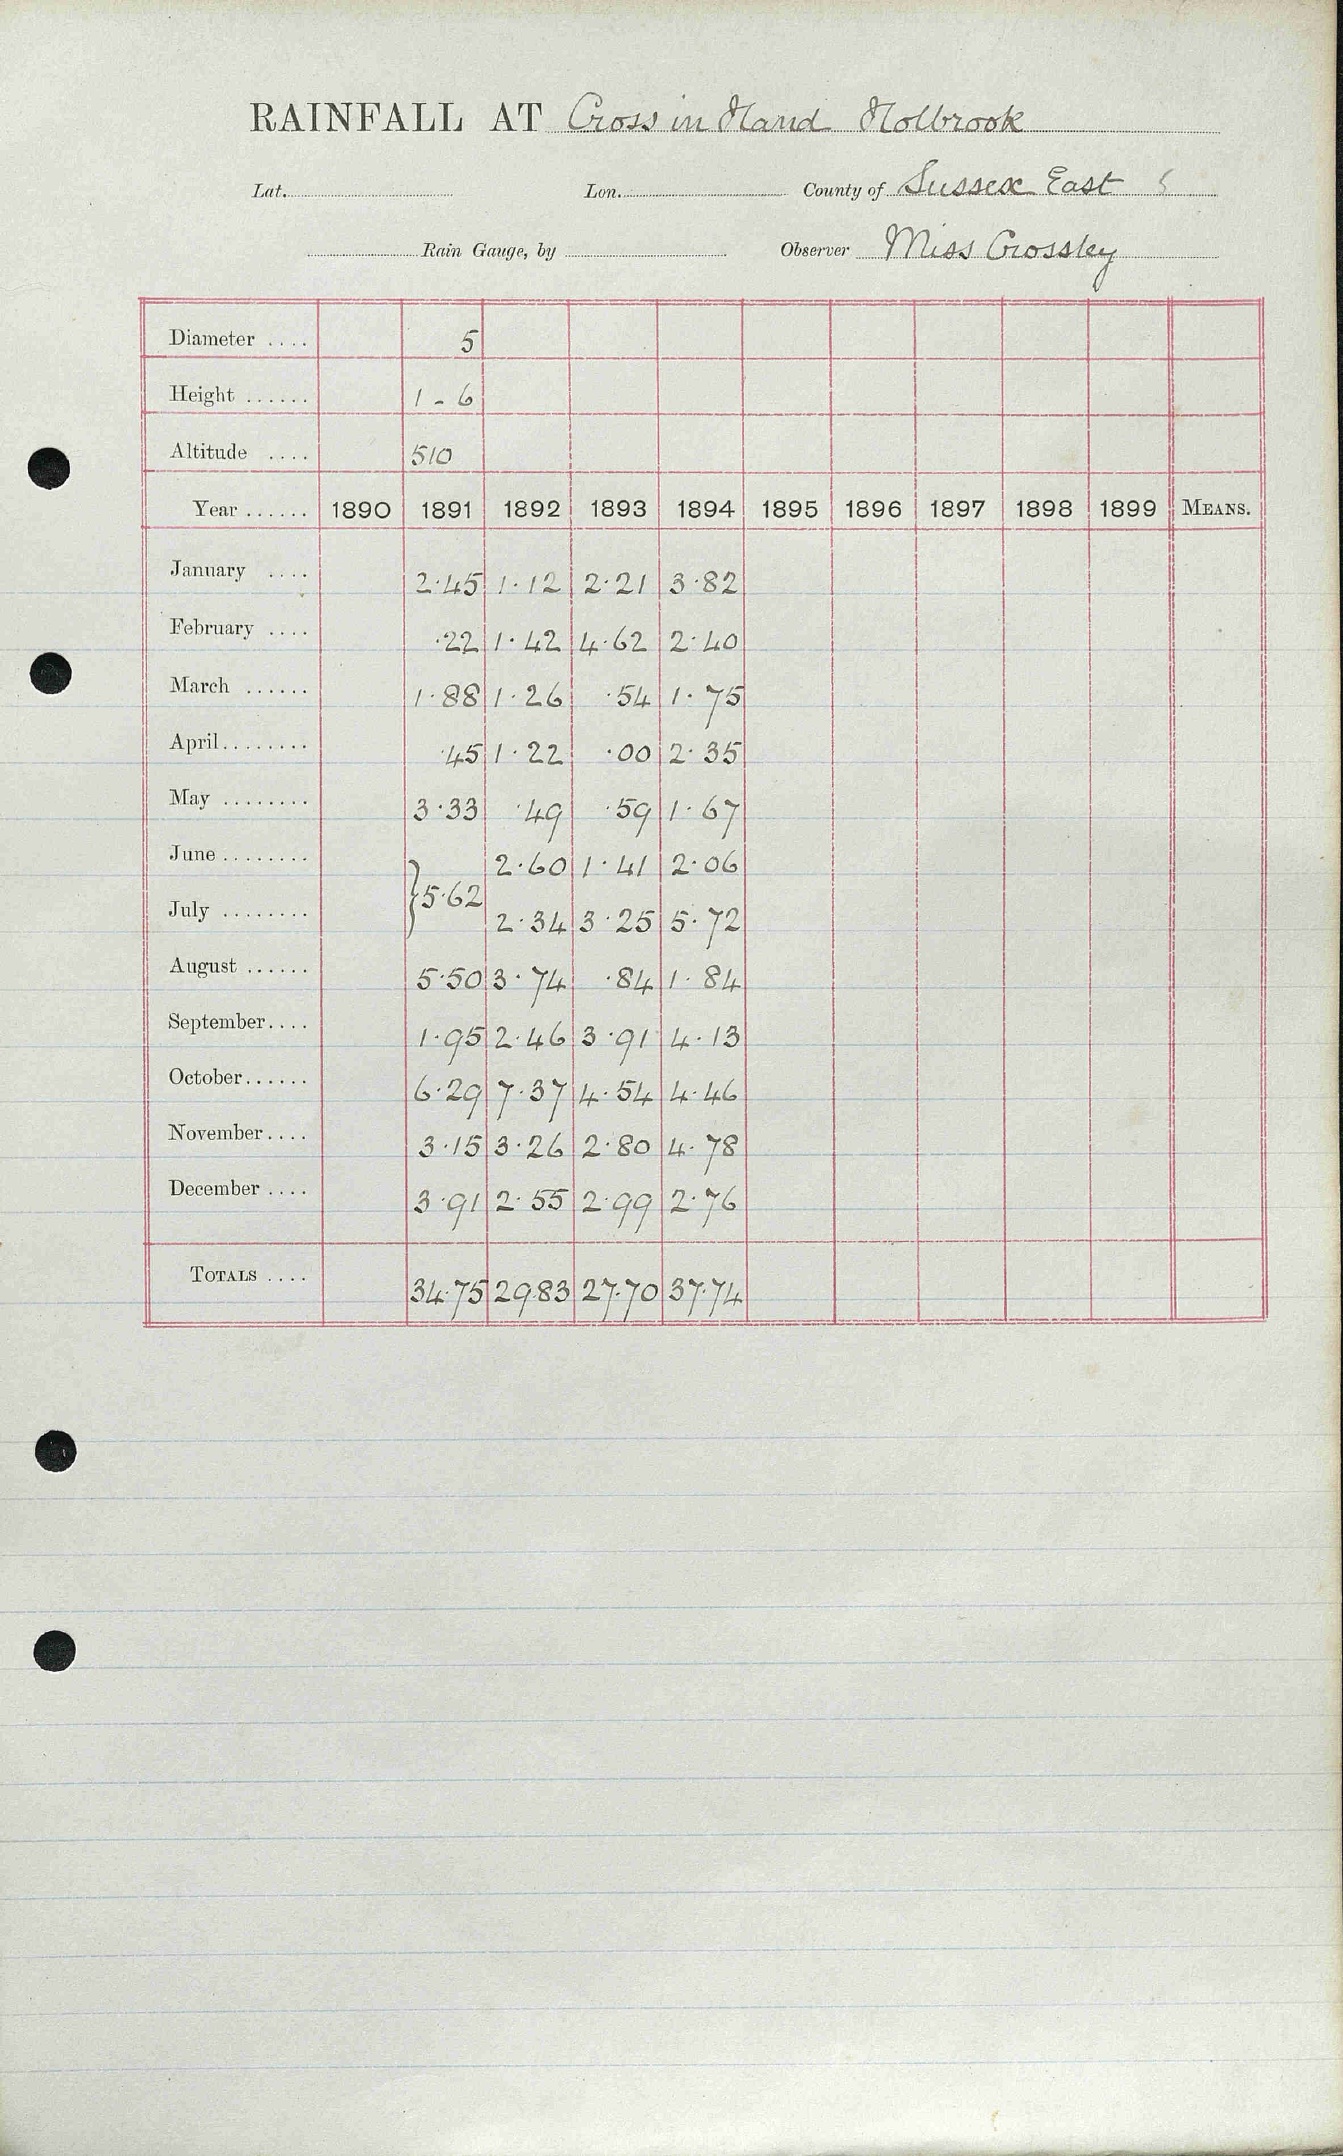 RAINFALL AT Cross in Hand Holbrook
Lat. Lon. County of Sussex East
Rain Gauge, by Observer Miss Crossley
Diameter .... 5
Height ...... 1 - 6
Altitude .... 510
Year ...... 1890 1891 1892 1893 1894 1895 1896 1897 1898 1899 MEANS.
January .... 2.45 1.12 2.21 3.82
February .... .22 1.42 4.62 2.40
March ...... 1.88 1.26 .54 1.75
April........ .45 1.22 .00 2.35
May ........ 3.33 .49 .59 1.67
June ........ 2.60 1.41 2.06
} 5.62
July ........ 2.34 3.25 5.72
August ...... 5.50 3.74 .84 1.84
September.... 1.95 2.46 3.91 4.13
October...... 6.29 7.37 4.54 4.46
November.... 3.15 3.26 2.80 4.78
December .... 3.91 2.55 2.99 2.76
TOTALS .... 34.75 29.83 27.70 37.74